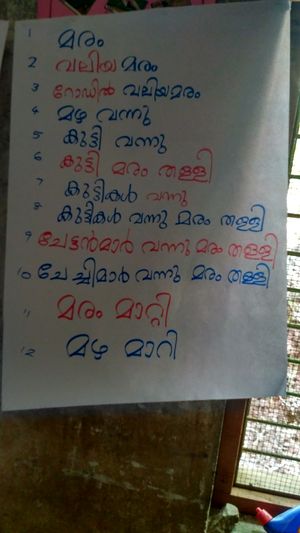 1 മരം
2 വലിയ മരം
3 റോഡിൽ വലിയമരം
4 മഴ വന്നു
5 കുട്ടി വന്നു
6 കുട്ടി മരം തള്ളി
7 കുട്ടികൾ വന്നു
8 കുട്ടികൾ വന്നു മരം തള്ളി
9 ചേട്ടൻമാർ വന്നു മരം തള്ളി
10 ചേച്ചിമാർ വന്നു മരം തള്ളി
11 മരം മാറ്റി
12 മഴ മാറി